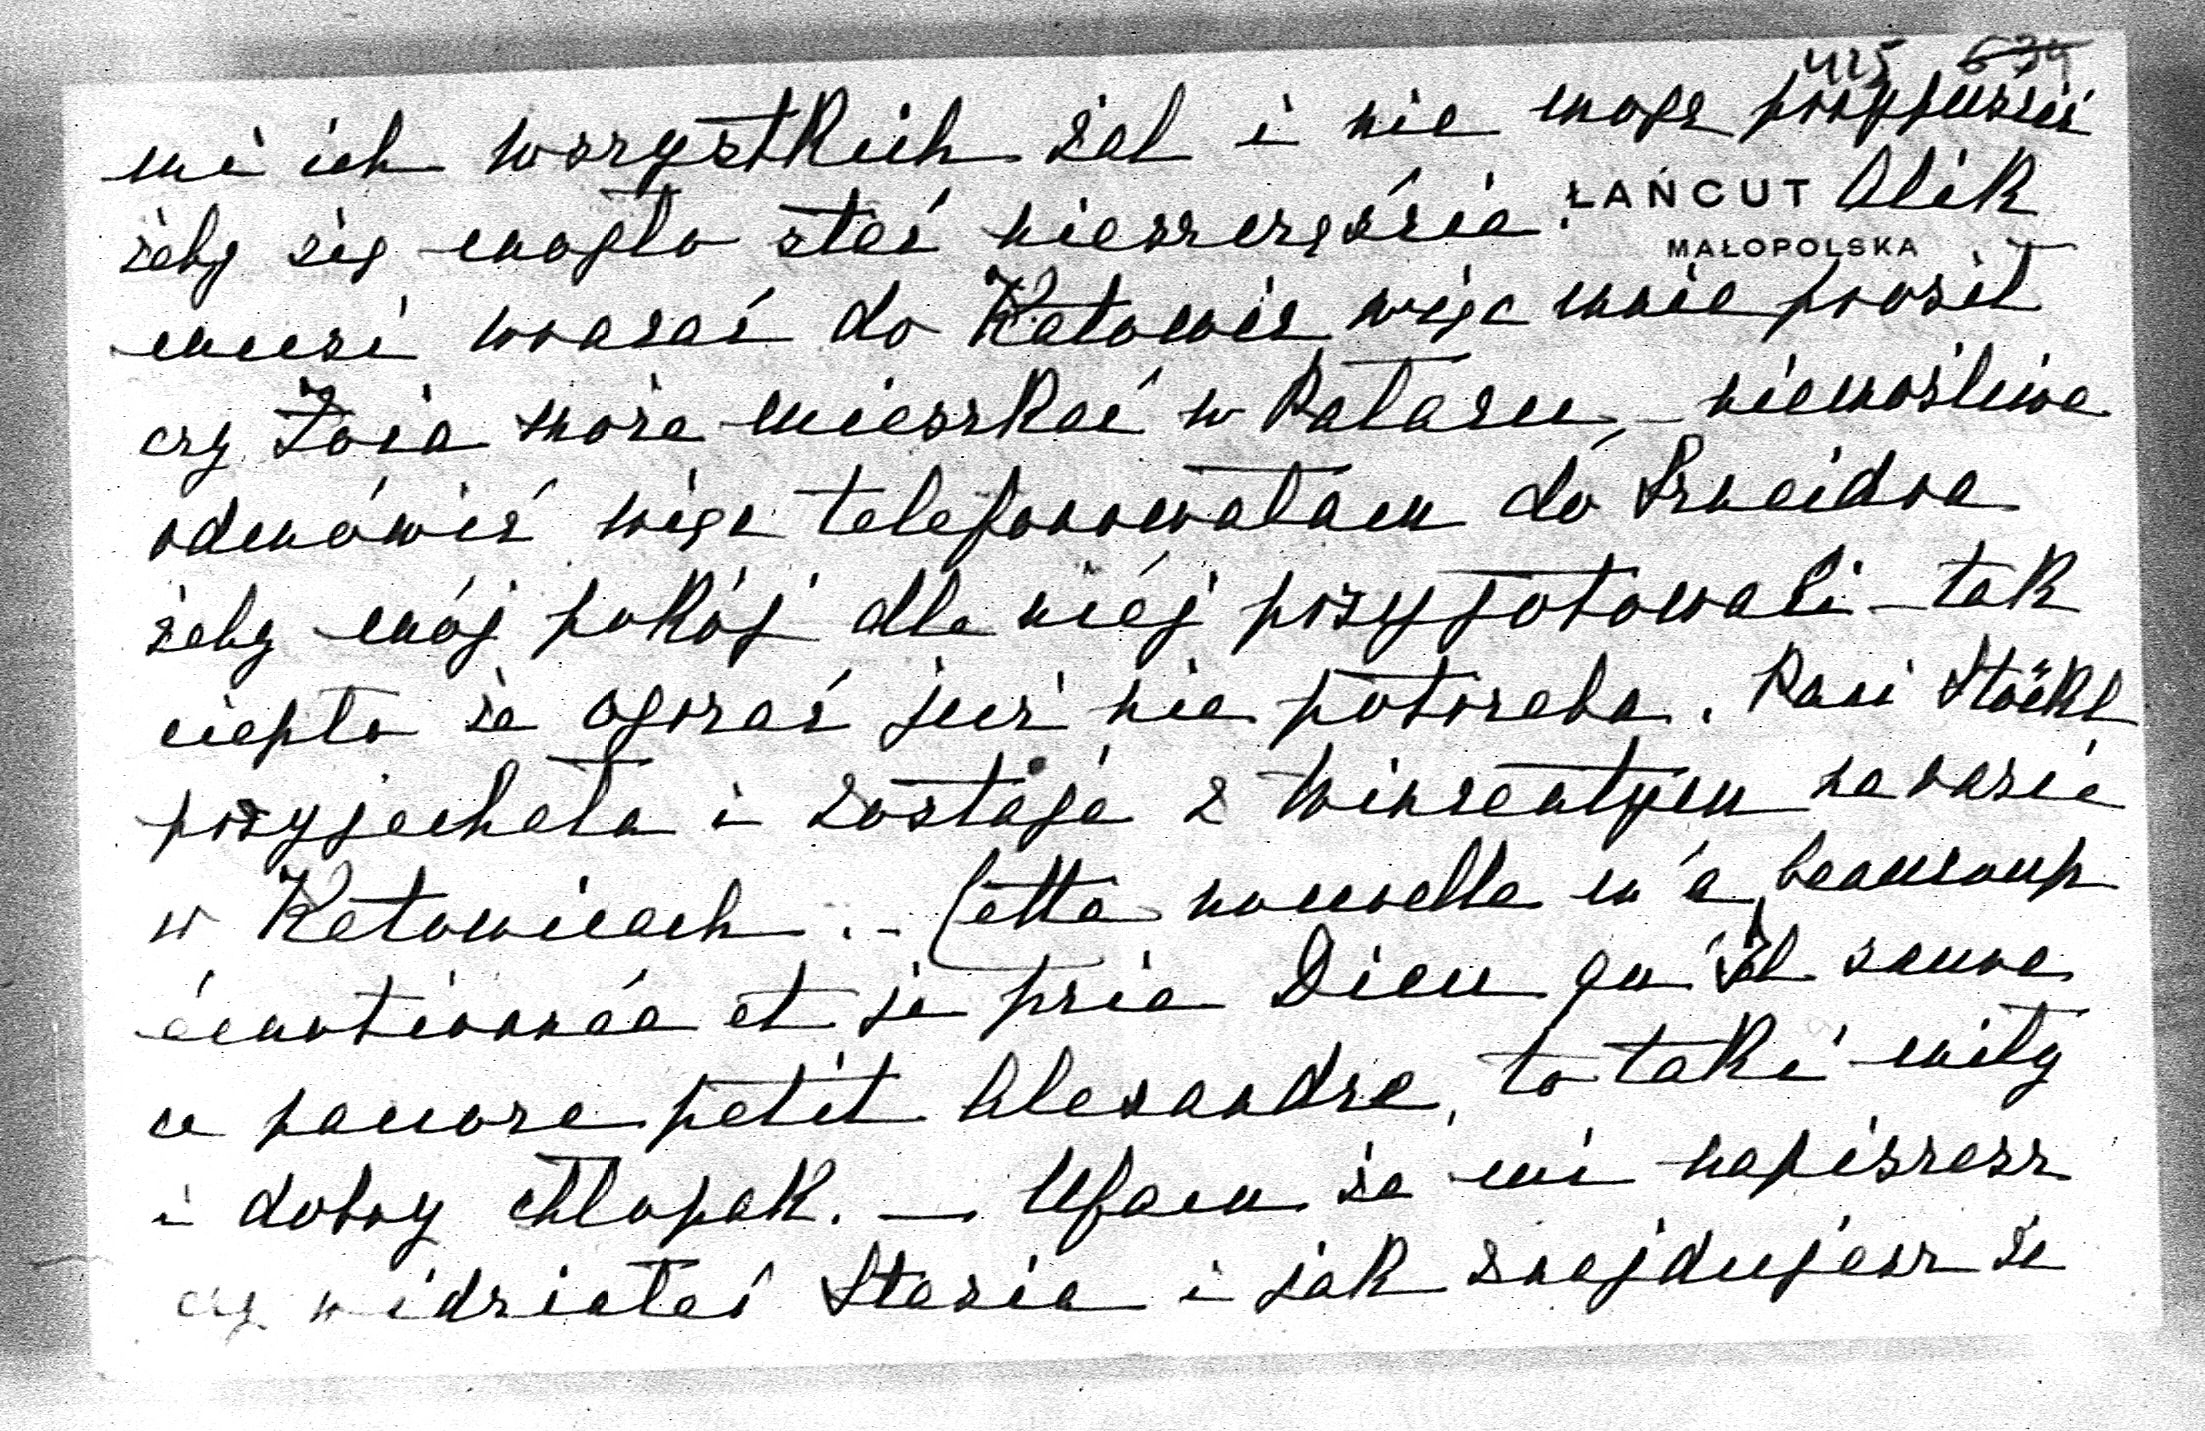 415 634
mi ich wszystkich żal i nie mogę przypuścić
żeby się mogło stać nieszczęście. ŁAŃCUT Alik
MAŁOPOLSKA
musi wracać do Katowic więc mnie prosił
czy Zosia może mieszkać w Pałacu, – niemożliwe
odmówić więc telefonowałam do Szneidra
żeby mój pokój dla niéj przygotowali – tak
ciepło że ogrzać już nie potrzeba. Pani Stöckl
przyjechała i zostaje z Wincentym na razie
w Katowicach. – Cette nouvelle m'a beaucoup
émotionnée et je prie Dieu qu'Il sauve
ce pauvre petit Alexandre, to taki miły
i dobry chłopak. — Ufam że mi napiszesz
czy widziałeś Stasia i jak znajdujesz że